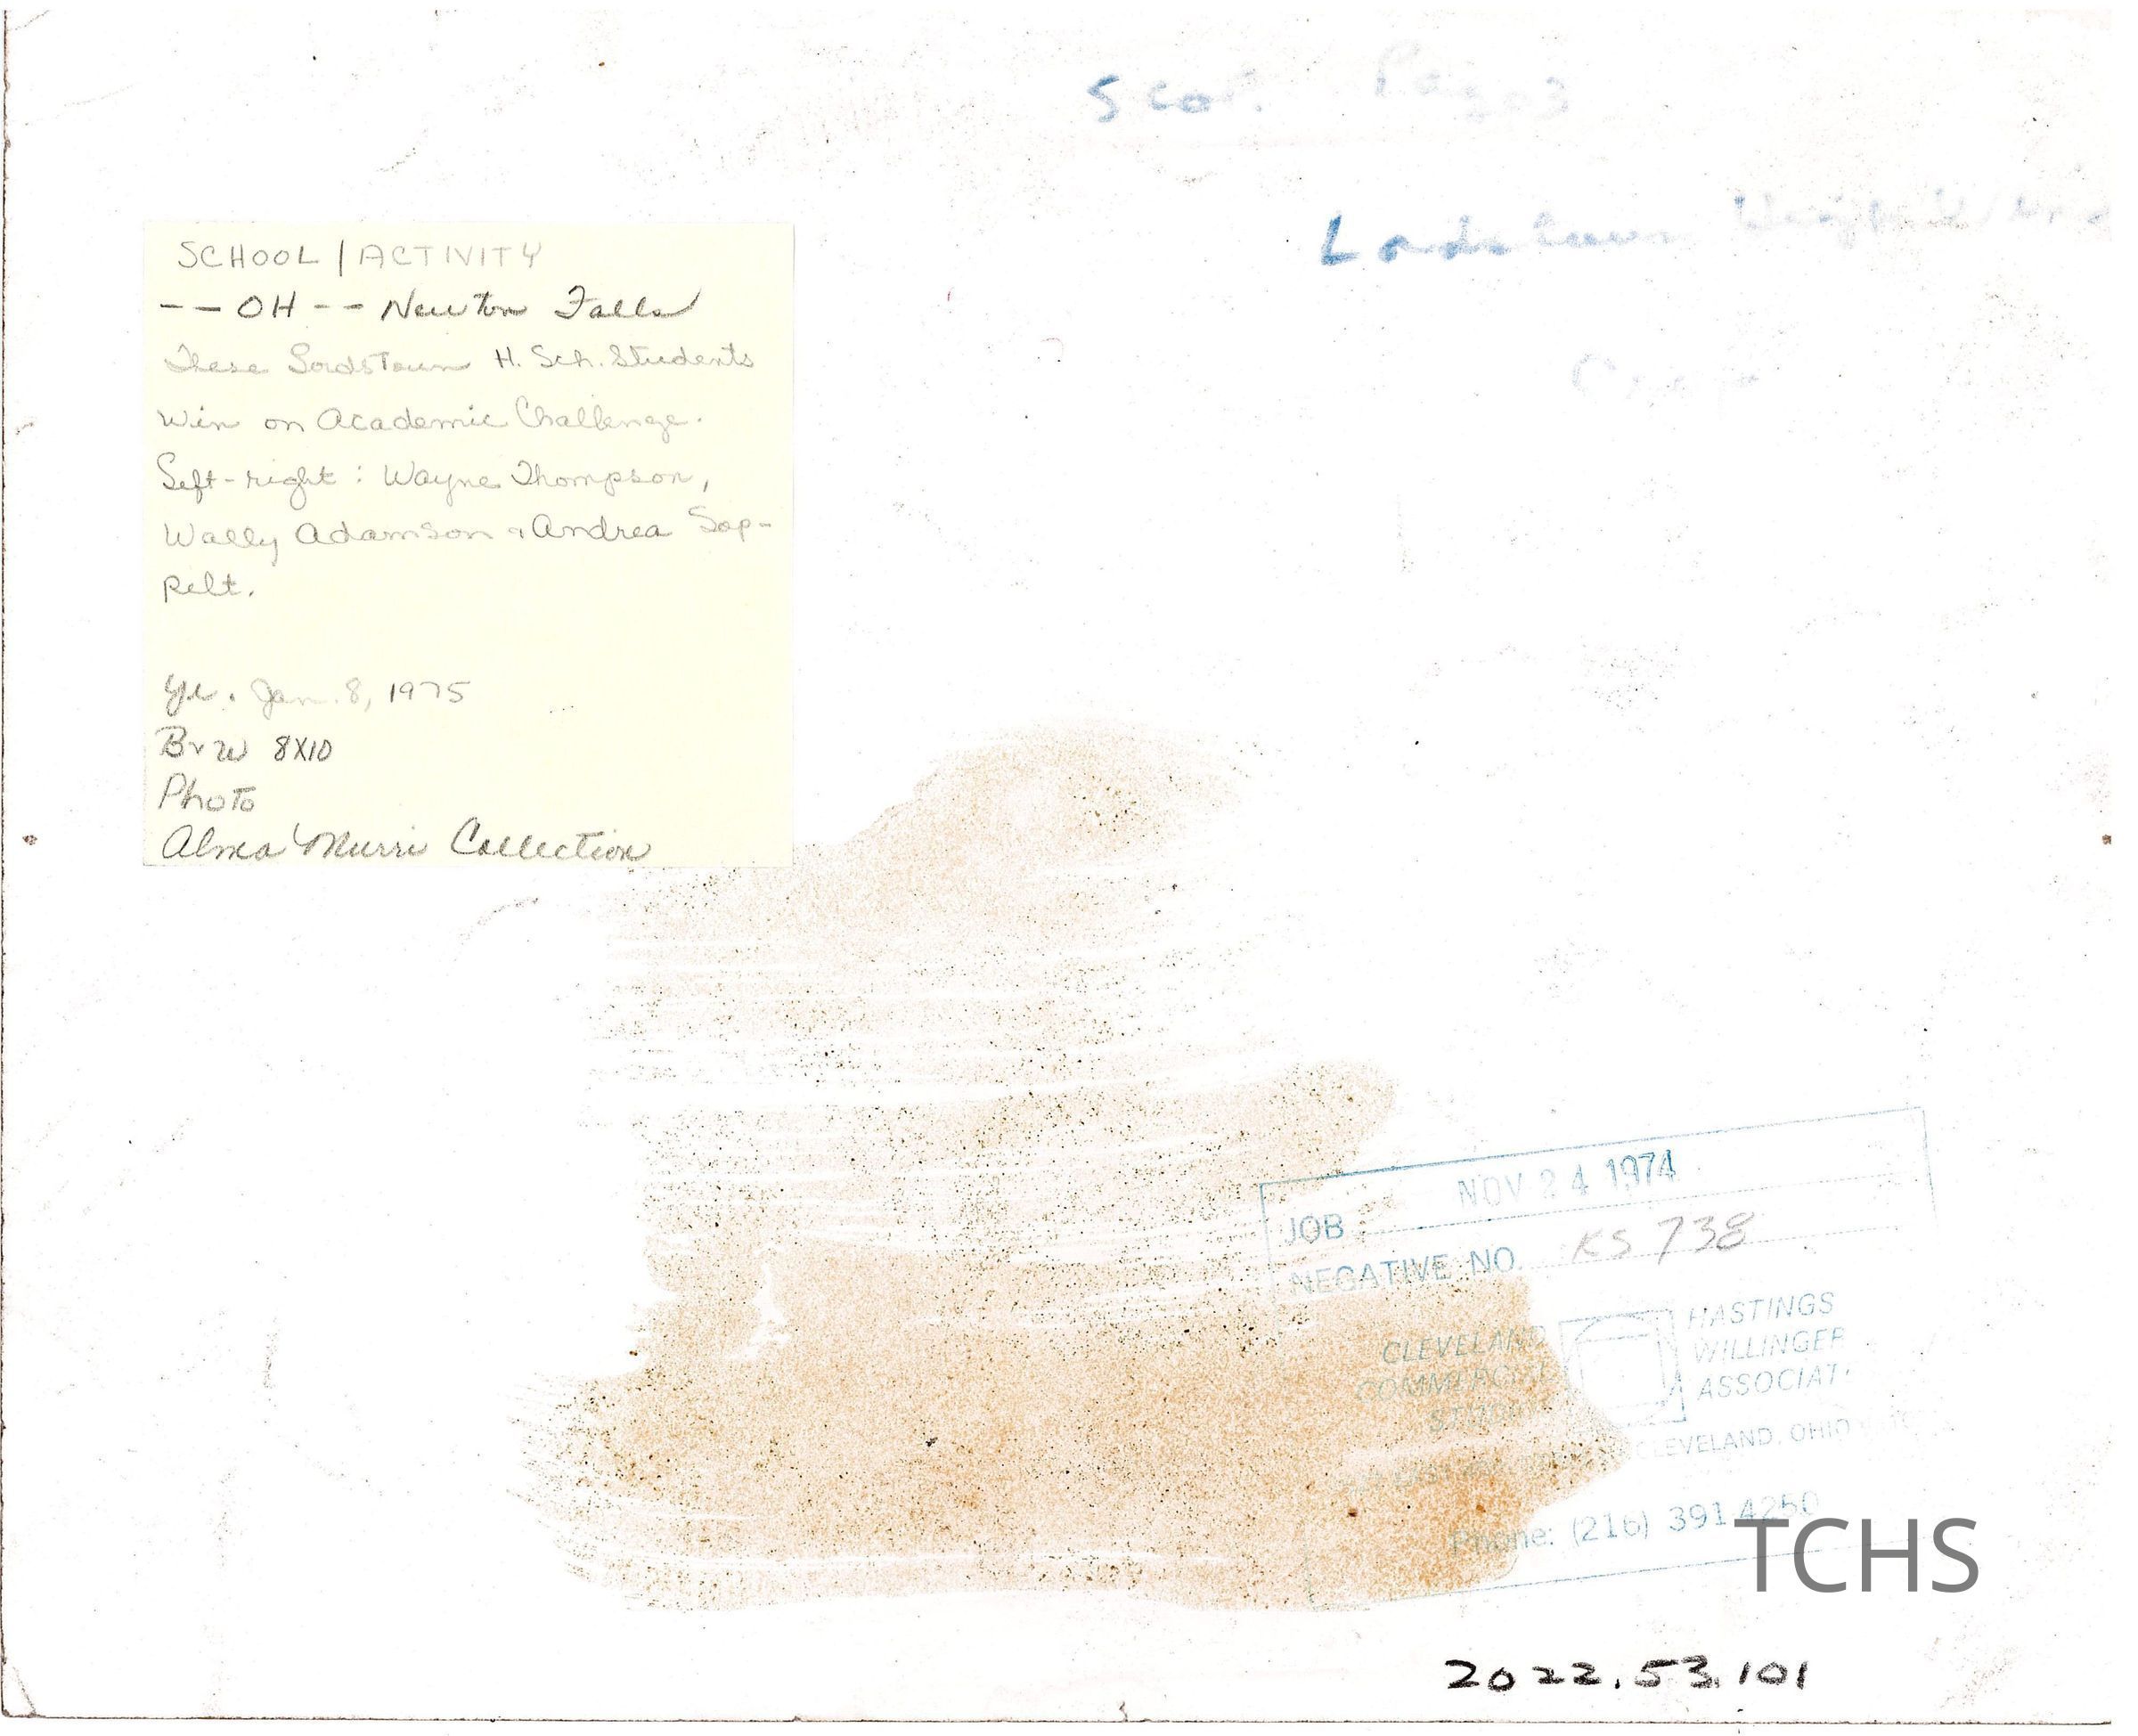 Page 3
Lordstown
SCHOOL / ACTIVITY
-- OH -- Newton Falls
These Lordstown H. Sch. Students
Win on Academic Challenge.
Left-right: Wayne Thompson,
Wally Adamson & Andrea Sop-
pelt.
Yr. Jan. 8, 1975
B&W 8X10
Photo
Alma Murri Collection
NOV 24 1974
JOB
NEGATIVE NO. KS 738
CLEVELAND
COMMERCIAL
STUDIO
HASTINGS
WILLINGER
ASSOCIAT
CLEVELAND, OHIO
Phone: (216) 391 4250
TCHS
2022.53.101